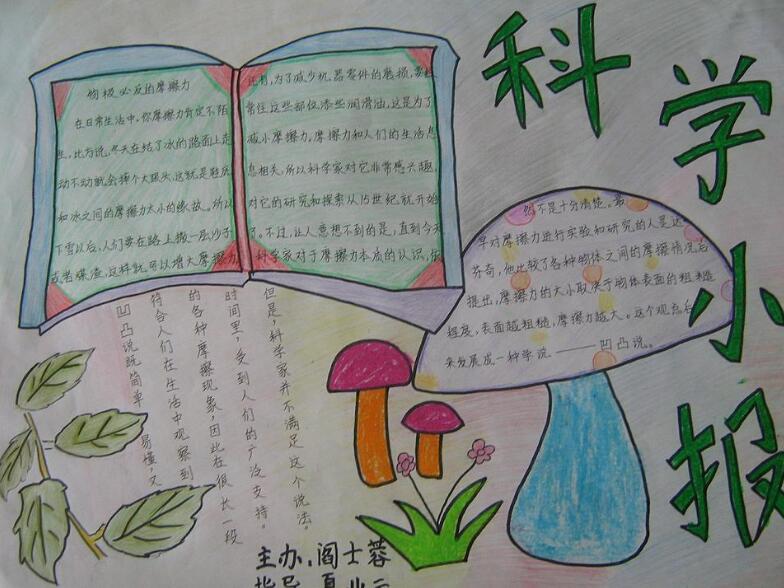 科学小报
物极必反的摩擦力
在日常生活中，你摩擦力肯定不陌
生，比方说，冬天在结了冰的路面上走
动不动就会摔个大跟头，这就是鞋底
和冰之间的摩擦力太小的缘故。所以
下雪以后，人们要在路上撒一层沙子
或者煤渣，这样就可以增大摩擦力
还有，为了减少机器零件的磨损，要经
常往这些部位添些润滑油，这是为了
减小摩擦力。摩擦力和人们的生活息
息相关。所以科学家对它非常感兴趣，
对它的研究和探索从15世纪就开始
了。不过，让人意想不到的是，直到今天
科学家对于摩擦力本质的认识，依
然不是十分清楚。最
早对摩擦力进行实验和研究的人是达
芬奇，他比较了各种物体之间的摩擦情况后
提出，摩擦力的大小取决于物体表面的粗糙
程度，表面越粗糙，摩擦力越大。这个观点后
来发展成一种学说———凹凸说。
凹凸说既简单易懂，又
符合人们在生活中观察到
的各种摩擦现象，因此在很长一段
时间里，受到人们的广泛支持。
但是，科学家并不满足这个说法。
主办：阎士蓉
指导